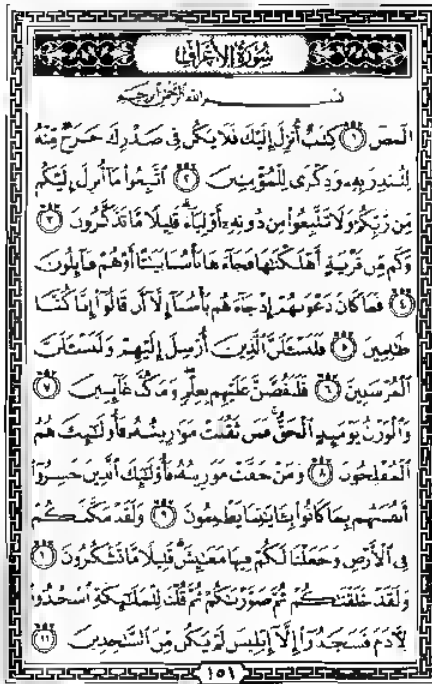 سُورَةُ الْأَعْرَافِ
بِسْمِ اللَّهِ الرَّحْمَٰنِ الرَّحِيمِ
الٓمٓصٓ ١ كِتَٰبٌ أُنزِلَ إِلَيْكَ فَلَا يَكُن فِى صَدْرِكَ حَرَجٌ مِّنْهُ
لِتُنذِرَ بِهِۦ وَذِكْرَىٰ لِلْمُؤْمِنِينَ ٢ ٱتَّبِعُوا۟ مَآ أُنزِلَ إِلَيْكُم
مِّن رَّبِّكُمْ وَلَا تَتَّبِعُوا۟ مِن دُونِهِۦٓ أَوْلِيَآءَ ۗ قَلِيلًا مَّا تَذَكَّرُونَ ٣
وَكَم مِّن قَرْيَةٍ أَهْلَكْنَٰهَا فَجَآءَهَا بَأْسُنَا بَيَٰتًا أَوْ هُمْ قَآئِلُونَ
٤ فَمَا كَانَ دَعْوَىٰهُمْ إِذْ جَآءَهُم بَأْسُنَآ إِلَّآ أَن قَالُوٓا۟ إِنَّا كُنَّا
ظَٰلِمِينَ ٥ فَلَنَسْـَٔلَنَّ ٱلَّذِينَ أُرْسِلَ إِلَيْهِمْ وَلَنَسْـَٔلَنَّ
ٱلْمُرْسَلِينَ ٦ فَلَنَقُصَّنَّ عَلَيْهِم بِعِلْمٍ ۖ وَمَا كُنَّا غَآئِبِينَ ٧
وَٱلْوَزْنُ يَوْمَئِذٍ ٱلْحَقُّ ۚ فَمَن ثَقُلَتْ مَوَٰزِينُهُۥ فَأُو۟لَٰٓئِكَ هُمُ
ٱلْمُفْلِحُونَ ٨ وَمَنْ خَفَّتْ مَوَٰزِينُهُۥ فَأُو۟لَٰٓئِكَ ٱلَّذِينَ خَسِرُوٓا۟
أَنفُسَهُم بِمَا كَانُوا۟ بِـَٔايَٰتِنَا يَظْلِمُونَ ٩ وَلَقَدْ مَكَّنَّٰكُمْ
فِى ٱلْأَرْضِ وَجَعَلْنَا لَكُمْ فِيهَا مَعَٰيِشَ ۗ قَلِيلًا مَّا تَشْكُرُونَ ١٠
وَلَقَدْ خَلَقْنَٰكُمْ ثُمَّ صَوَّرْنَٰكُمْ ثُمَّ قُلْنَا لِلْمَلَٰٓئِكَةِ ٱسْجُدُوا۟
لِـَٔادَمَ فَسَجَدُوٓا۟ إِلَّآ إِبْلِيسَ لَمْ يَكُن مِّنَ ٱلسَّٰجِدِينَ ١١
١٥١